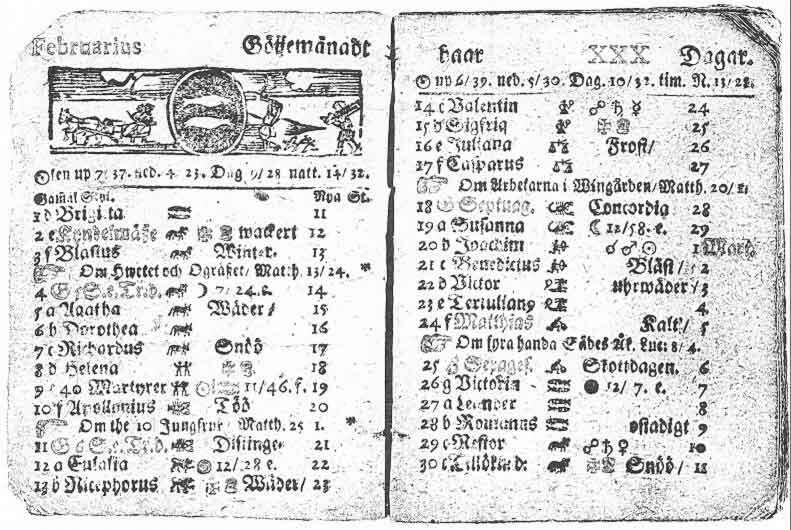 Februarius Göijemånadt
Solen up 7/37. ned. 4. 23. Dag 9/28 natt. 14/32.
Gamal Styl. Nya St.
1 d Brigitta 11
2 e Kyndelmässe wackert 12
3 f Blasius Winter. 13
Om Hwetet och Ogräset/ Matth. 13/24.
4 G 5 S. e. Tr. d. 7/24. 14
5 a Agatha Wäder/ 15
6 b Dorothea 16
7 c Richardus Snöö 17
8 d Helena 18
9 e 40 Martyrer 11/46. f. 19
10 f Apollonius Töö 20
Om the 10 Jungfrur/ Matth. 25 1.
11 G 6 S. e. Tr. d. Distinge 21
12 a Eulalia 12/28 e. 22
13 b Nicephorus Wäder/ 23
haar XXX Dagar.
up 6/39. ned. 5/30. Dag. 10/32. tim. N. 13/28.
14 c Valentin ☍ ♄ ☿ 24
15 d Sigfrid 25
16 e Juliana Frost/ 26
17 f Casparus 27
Om Arbetarna i Wingården/ Matth. 20/1.
18 G Septuag. Concordia 28
19 a Susanna ☾ 12/58. e. 29
20 b Joachim ☌ ♂ ☉ 1 Mart.
21 c Benedictus Bläst/ 2
22 d Victor uhrwäder/ 3
23 e Tertulian9 4
24 f Matthias Kalt/ 5
Om fyra handa Sädes Åk. Luc: 8/4.
25 g Sexages. Skottdagen. 6
26 g Victorin ● 12/7. e. 7
27 a Leander 8
28 b Romanus ostadigt 9
29 c Nestor ☍ ♄ ♀ 10
30 c Snöö/ 11